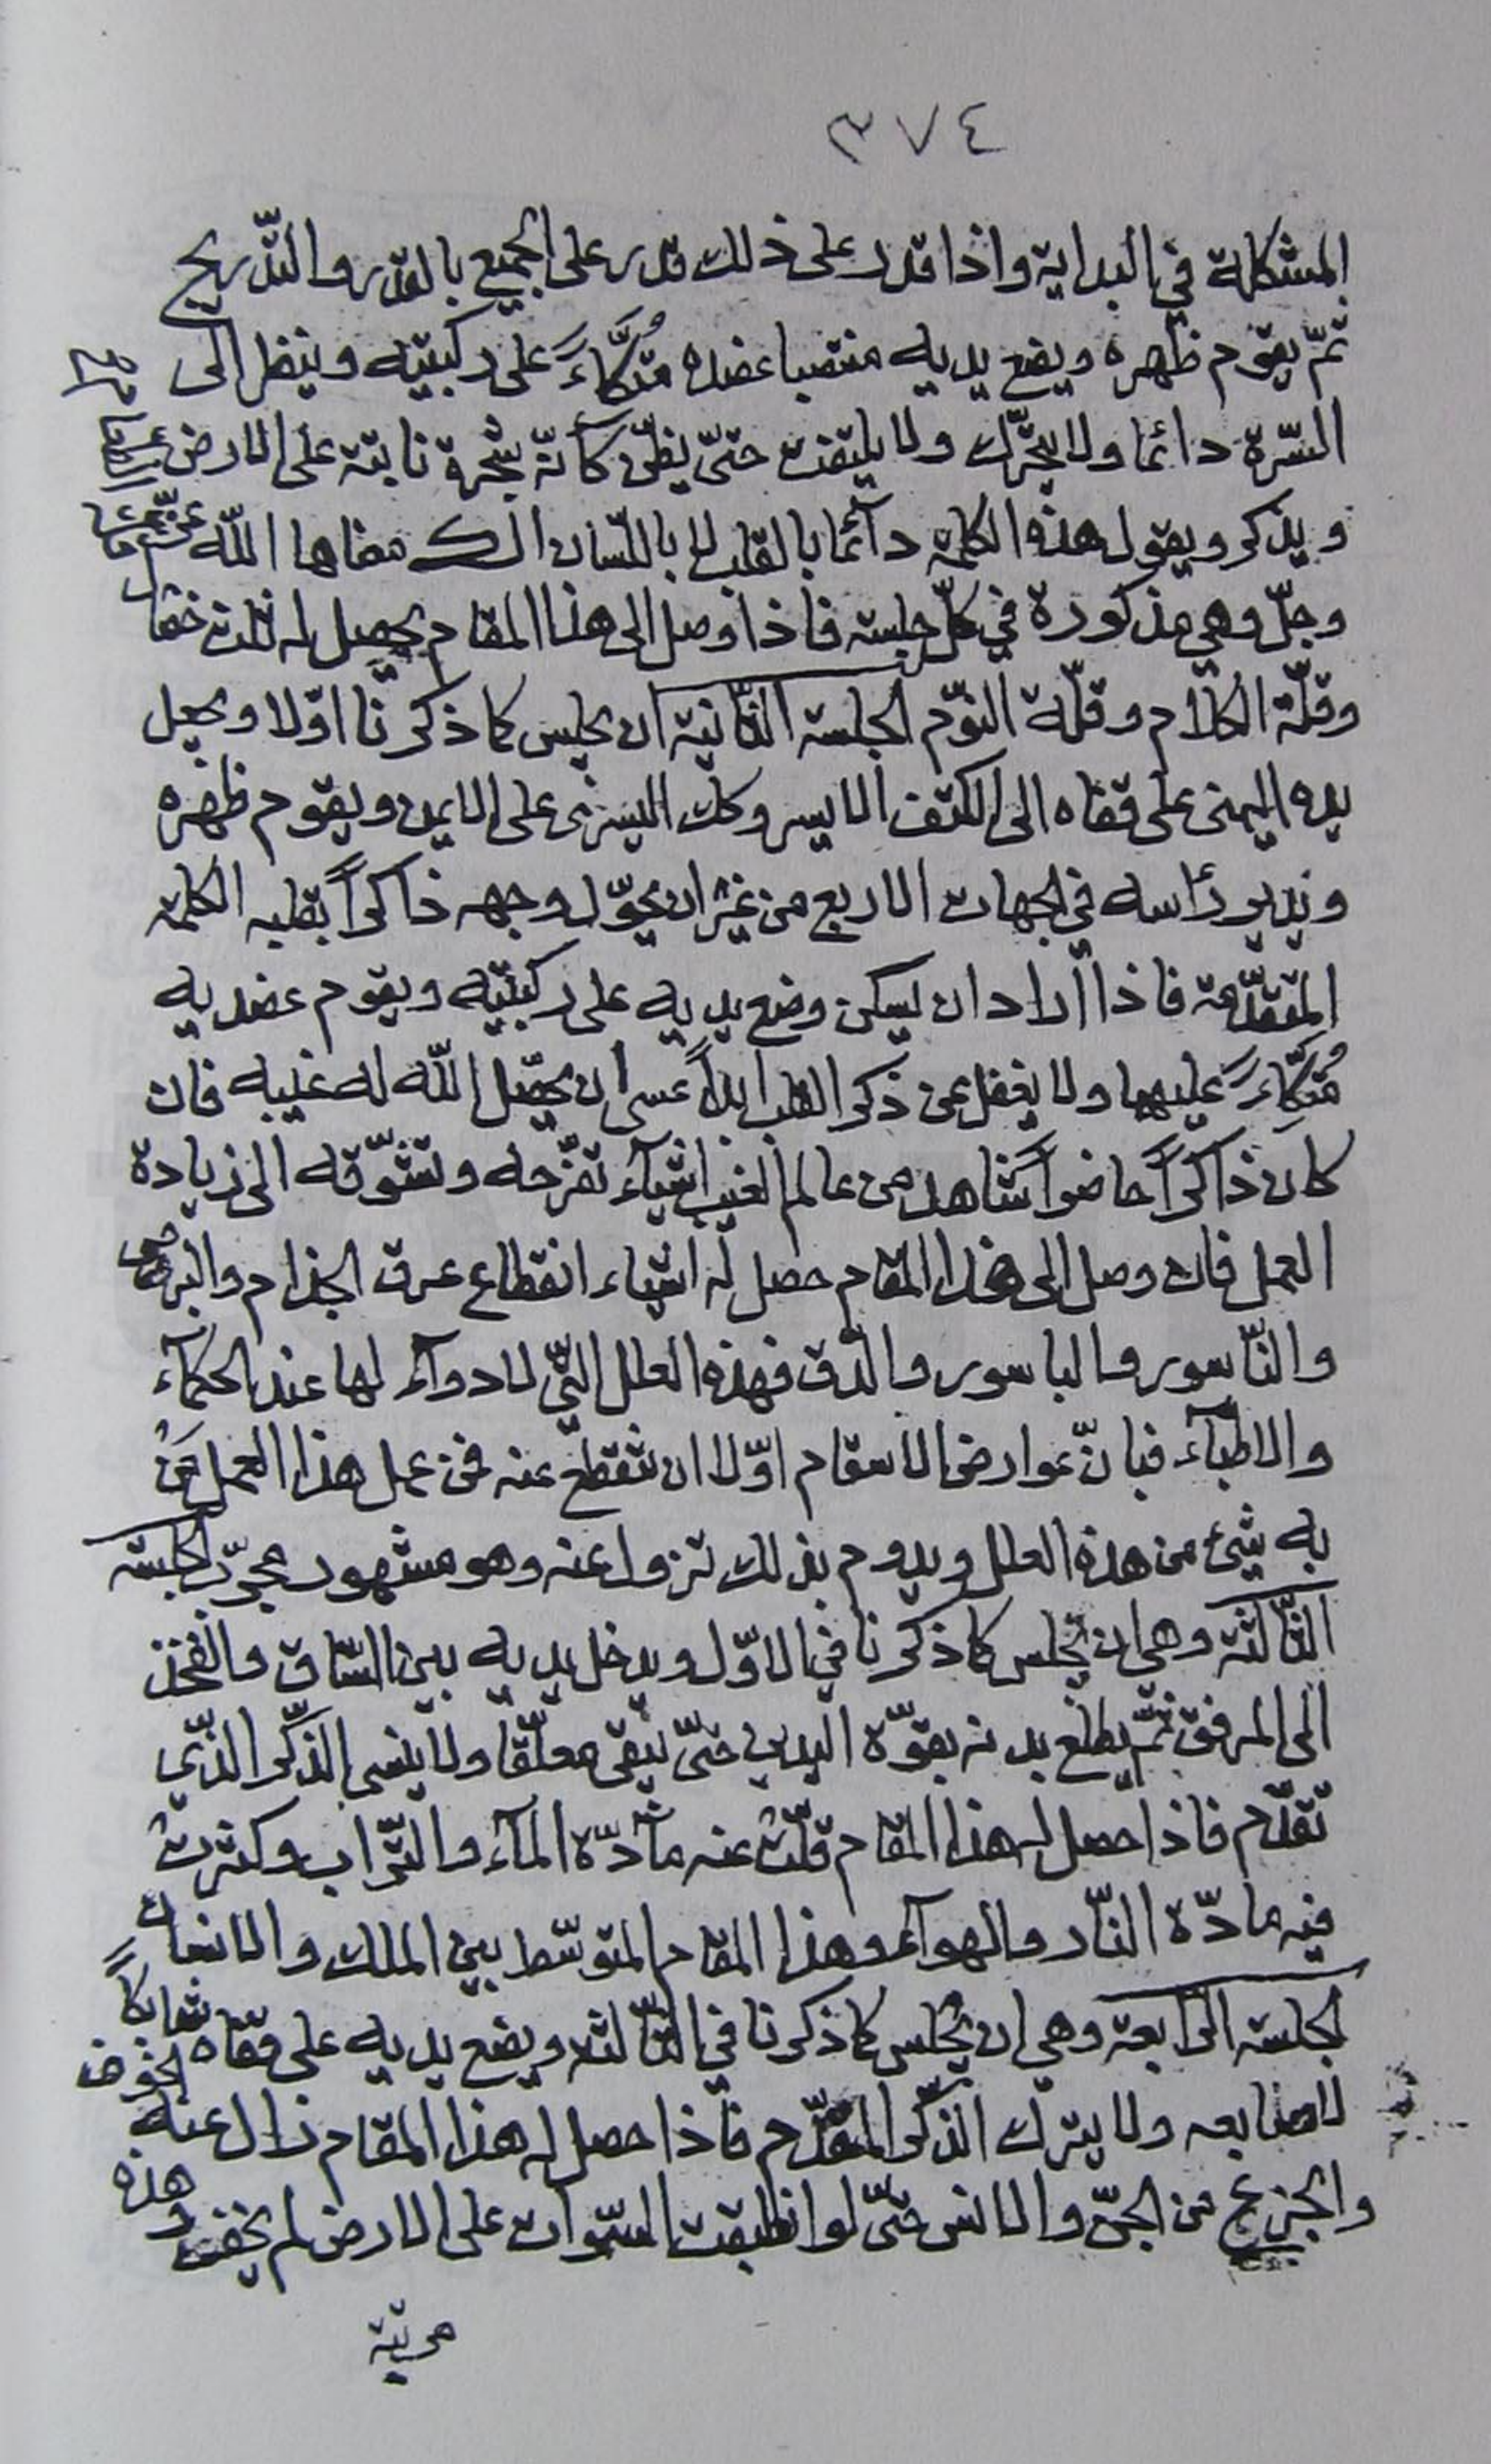 ٣٧٤
المشكلة في البداية واذا قدر على ذلك قدر على الجميع بالقدر والتّدريج
ثمّ يقوم ظهره ويضع يديه منتصبا عضده مُتكَّاءً على ركبتيه وينظر الى
السّرّة دائما ولا يتحرّك ولا يلتفت حتىّ يظنّ كأنّه شجرة نابتة على الارض
ويذكر ويقول هذه الكلمة دآئما بالقلب لا باللّسان الك معناها اللّه عزّ
وجلّ وهي مذكورة في كلّ جلسة فاذا وصل الى هذا المقام يحصل له ثلاث
وقلّة الكلام وقلّة النّوم الجلسة الثّانية ان يجلس كما ذكرنا اوّلا ويجعل
يده اليمنى على قفاه الى الكتف الايسر وكك اليسرى على الايمن ويقوم ظهره
ويدير رأسه في الجهات الاربع من غير ان يحوّل وجهه ذاكراً بقلبه الكلمة
المتقدّمة فاذا اراد ان يسكن وضع يديه على ركبتيه ويقوم عضديه
مُتكِّاءً عليهما ولا يغفل عن ذكر القلب ابداً عسى ان يحصّل اللّه له غيبه فان
كان ذاكراً حاضراً شاهد من عالم الغيب اشيآء تفرّحه وتشوّقه الى زيادة
العمل فان وصل الى هذا المقام حصل له اشياء انقطاع عرق الجذام والبرص
والنّاسور والباسور والدّق فهذه العلل التّي لا دوآء لها عند الحكمآء
والاطبآء فبانّ عوارض الاسقام اوّلا ان تنقطع عنه فمن عمل هذا العمل مَنْ
به شيئ من هذه العلل ويدوم بذلك تزول عنه وهو مشهور مجرّب الجلسة
الثّالثة وهي ان يجلس كما ذكرنا في الاوّل ويدخل يديه بين السّاق والفخذ
الى المرفق ثمّ يطلع بدنه بقوّة اليدين حتىّ يبقى معلّقا ولا ينسى الذّكر الذّي
تقدّم فاذا حصل له هذا المقام قلّت عنه مآدّة المآء والتّراب وكثرت
فيه مادّة النّار والهوآء وهذا المقام المتوسّط بين الملك والانسان
الجلسة الرّابعة وهي ان يجلس كما ذكرنا في الثّالثة ويضع يديه على قفاه شابكاً
لاصابعه ولا يترك الذّكر المتقدّم فاذا حصل له هذا المقام زال عنه الخوف
والجزع من الجنّ والانس حتىّ لو انطبقت السّموات على الارض لم يخف وهذه
مرتبة